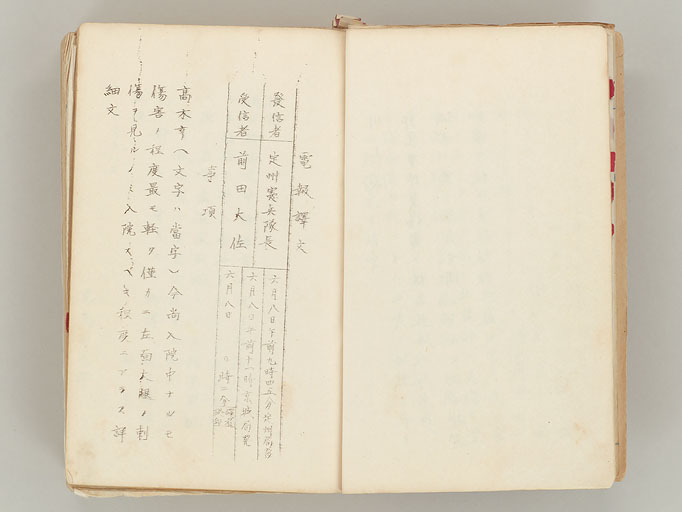 電報譯文
發信者 定州憲兵隊長 六月八日午前九時四五分定州局発
六月八日午前十一時 京城局着
受信者 前田大佐 六月八日 時 分
事項
高木亨(文字ハ當字)今尚入院中ナルモ
傷害ノ程度最モ軽ク僅カニ左面大腿ノ刺
傷ヲ見ルノミ入院スベキ程度ニアラス詳
細文